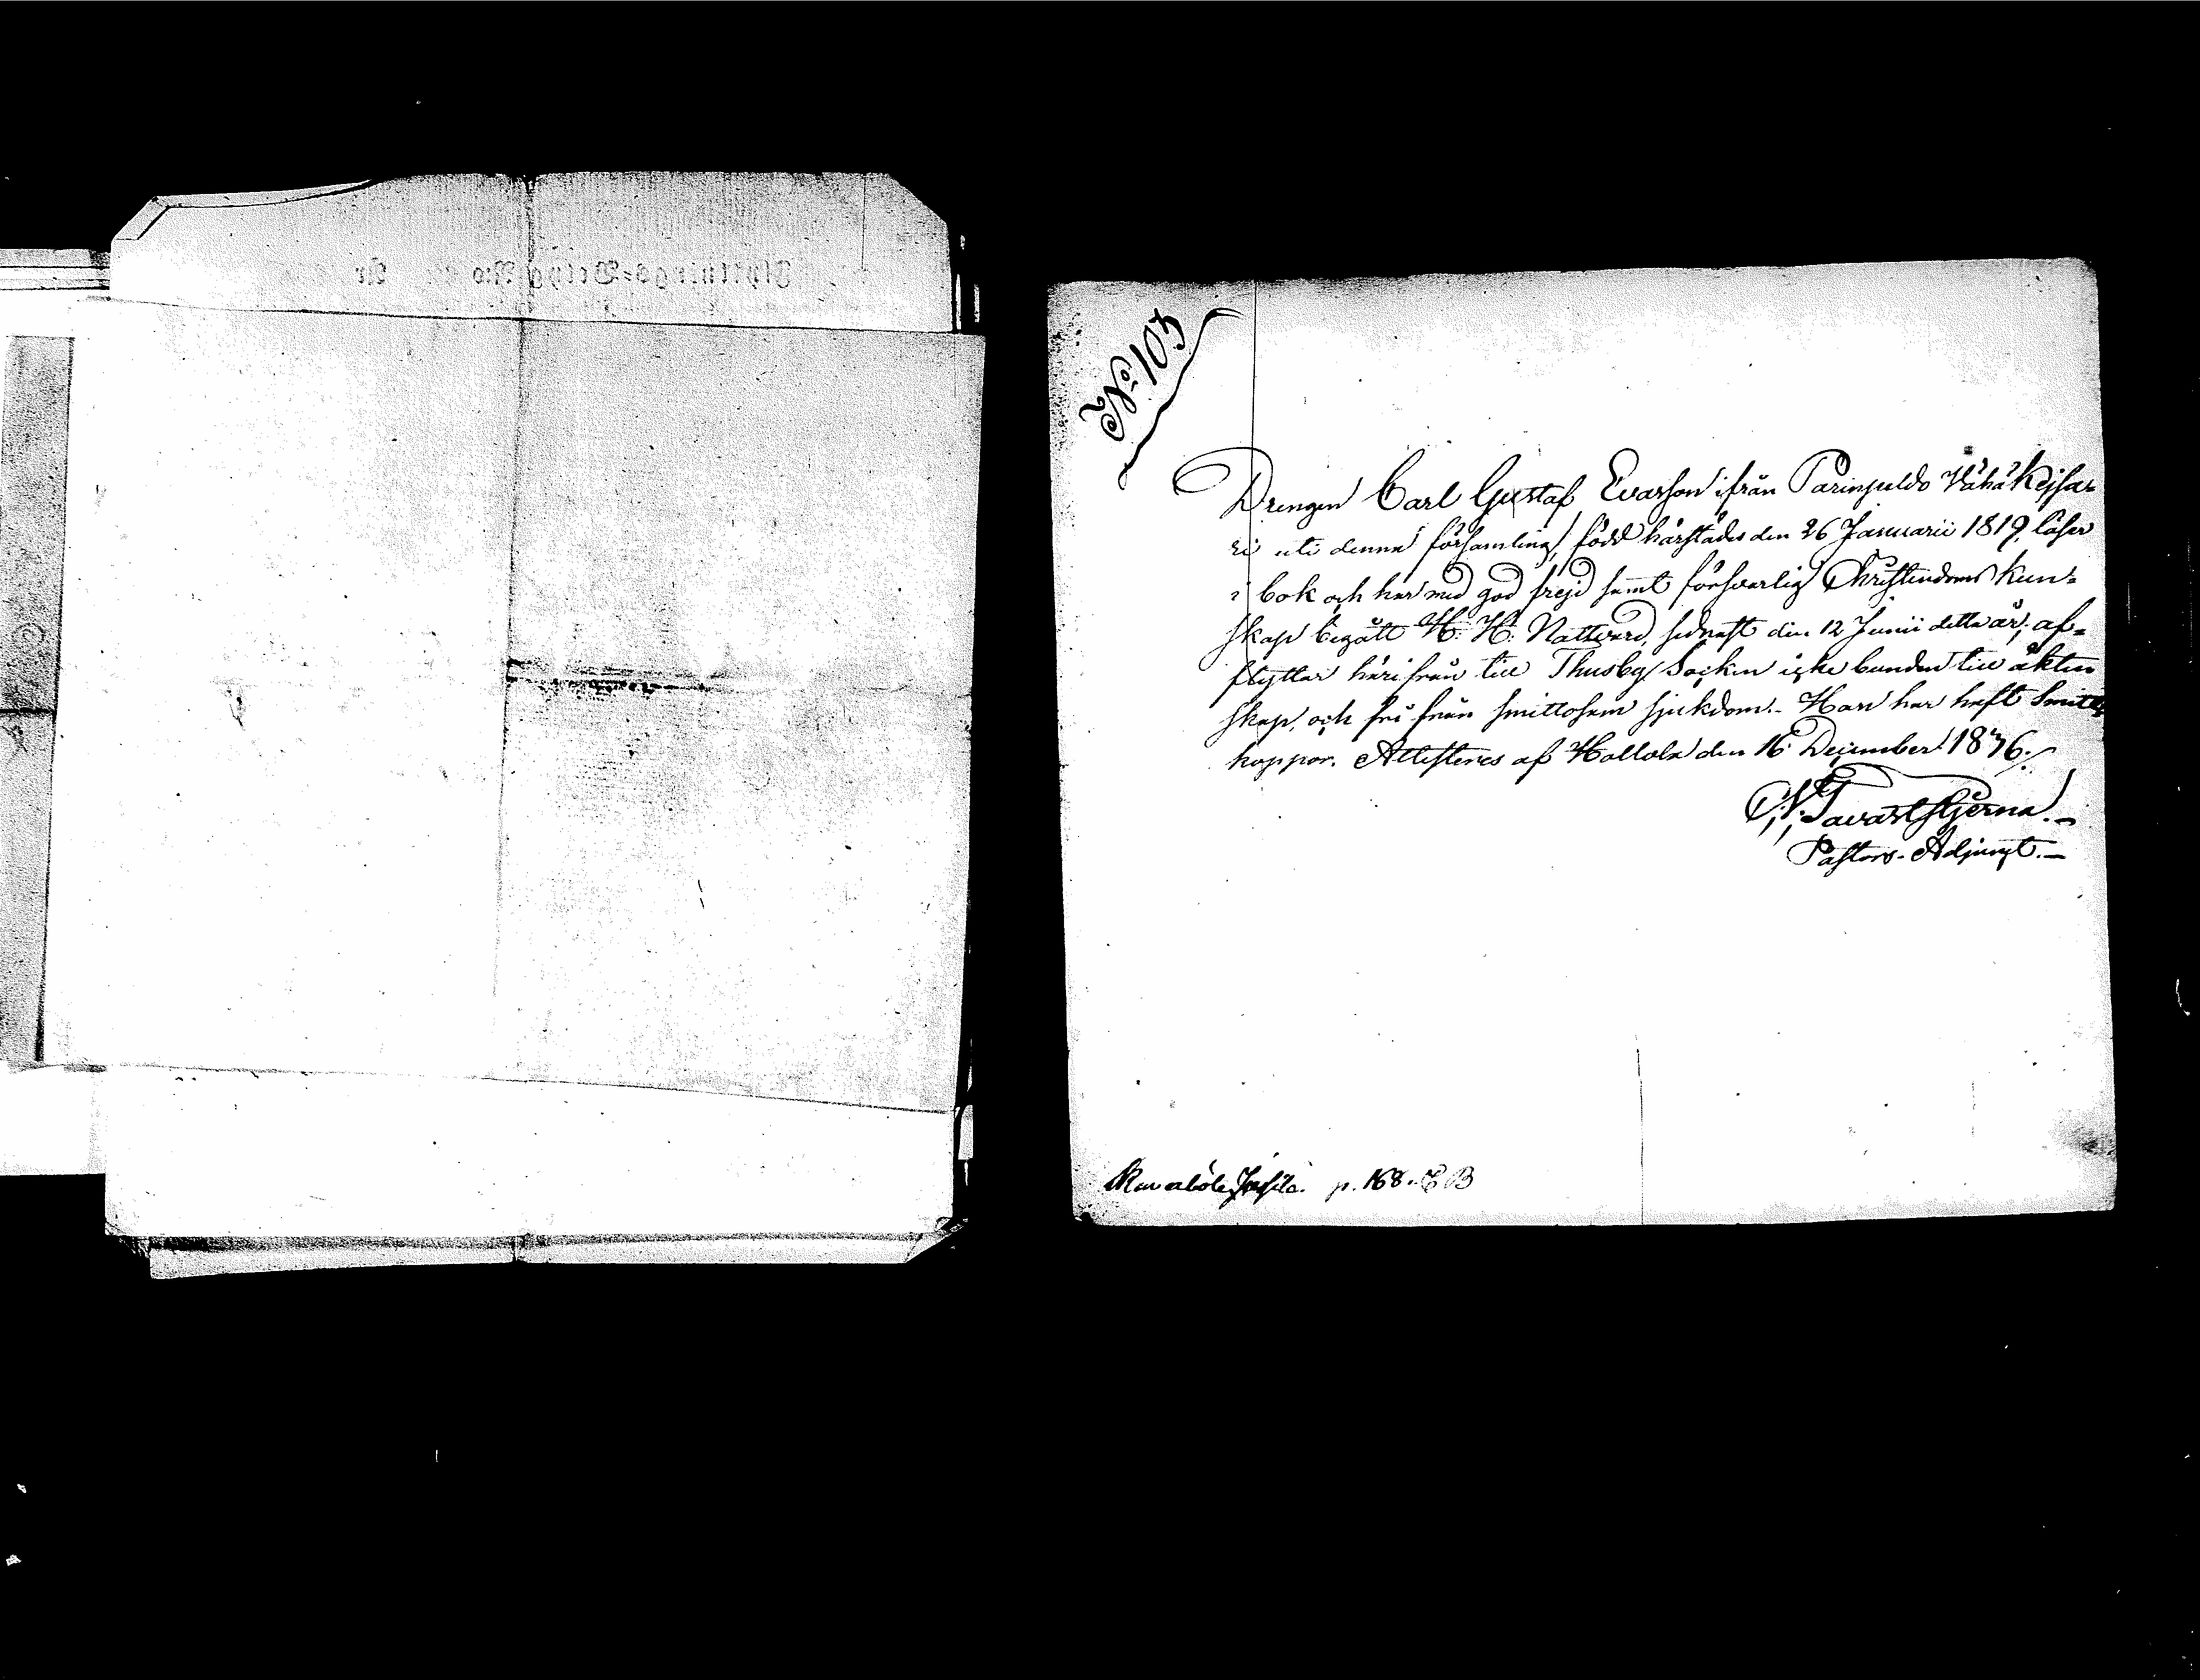 Flyttnings-Betyg No År
No 104
Drengen Carl Gustaf Evasson ifrån Parinpeldo Vähä Kejsa-
ri uti denna församling, född härstädes den 26 Januarii 1819, läser
i bok och har med god frejd samt försvarlig Christendoms kun-
skap begått H. H. Nattvard, sednast den 12 Junii detta år, af-
flyttar härifrån till Thusby Socken icke bunden till äkten
skap, och fri från smittosam sjukdom.- Han har haft Smitt-
koppor. Attesteras af Hollola den 16 December 1846.
N. Tavaststjerna.
Pastors-Adjunct.
p. 168. B